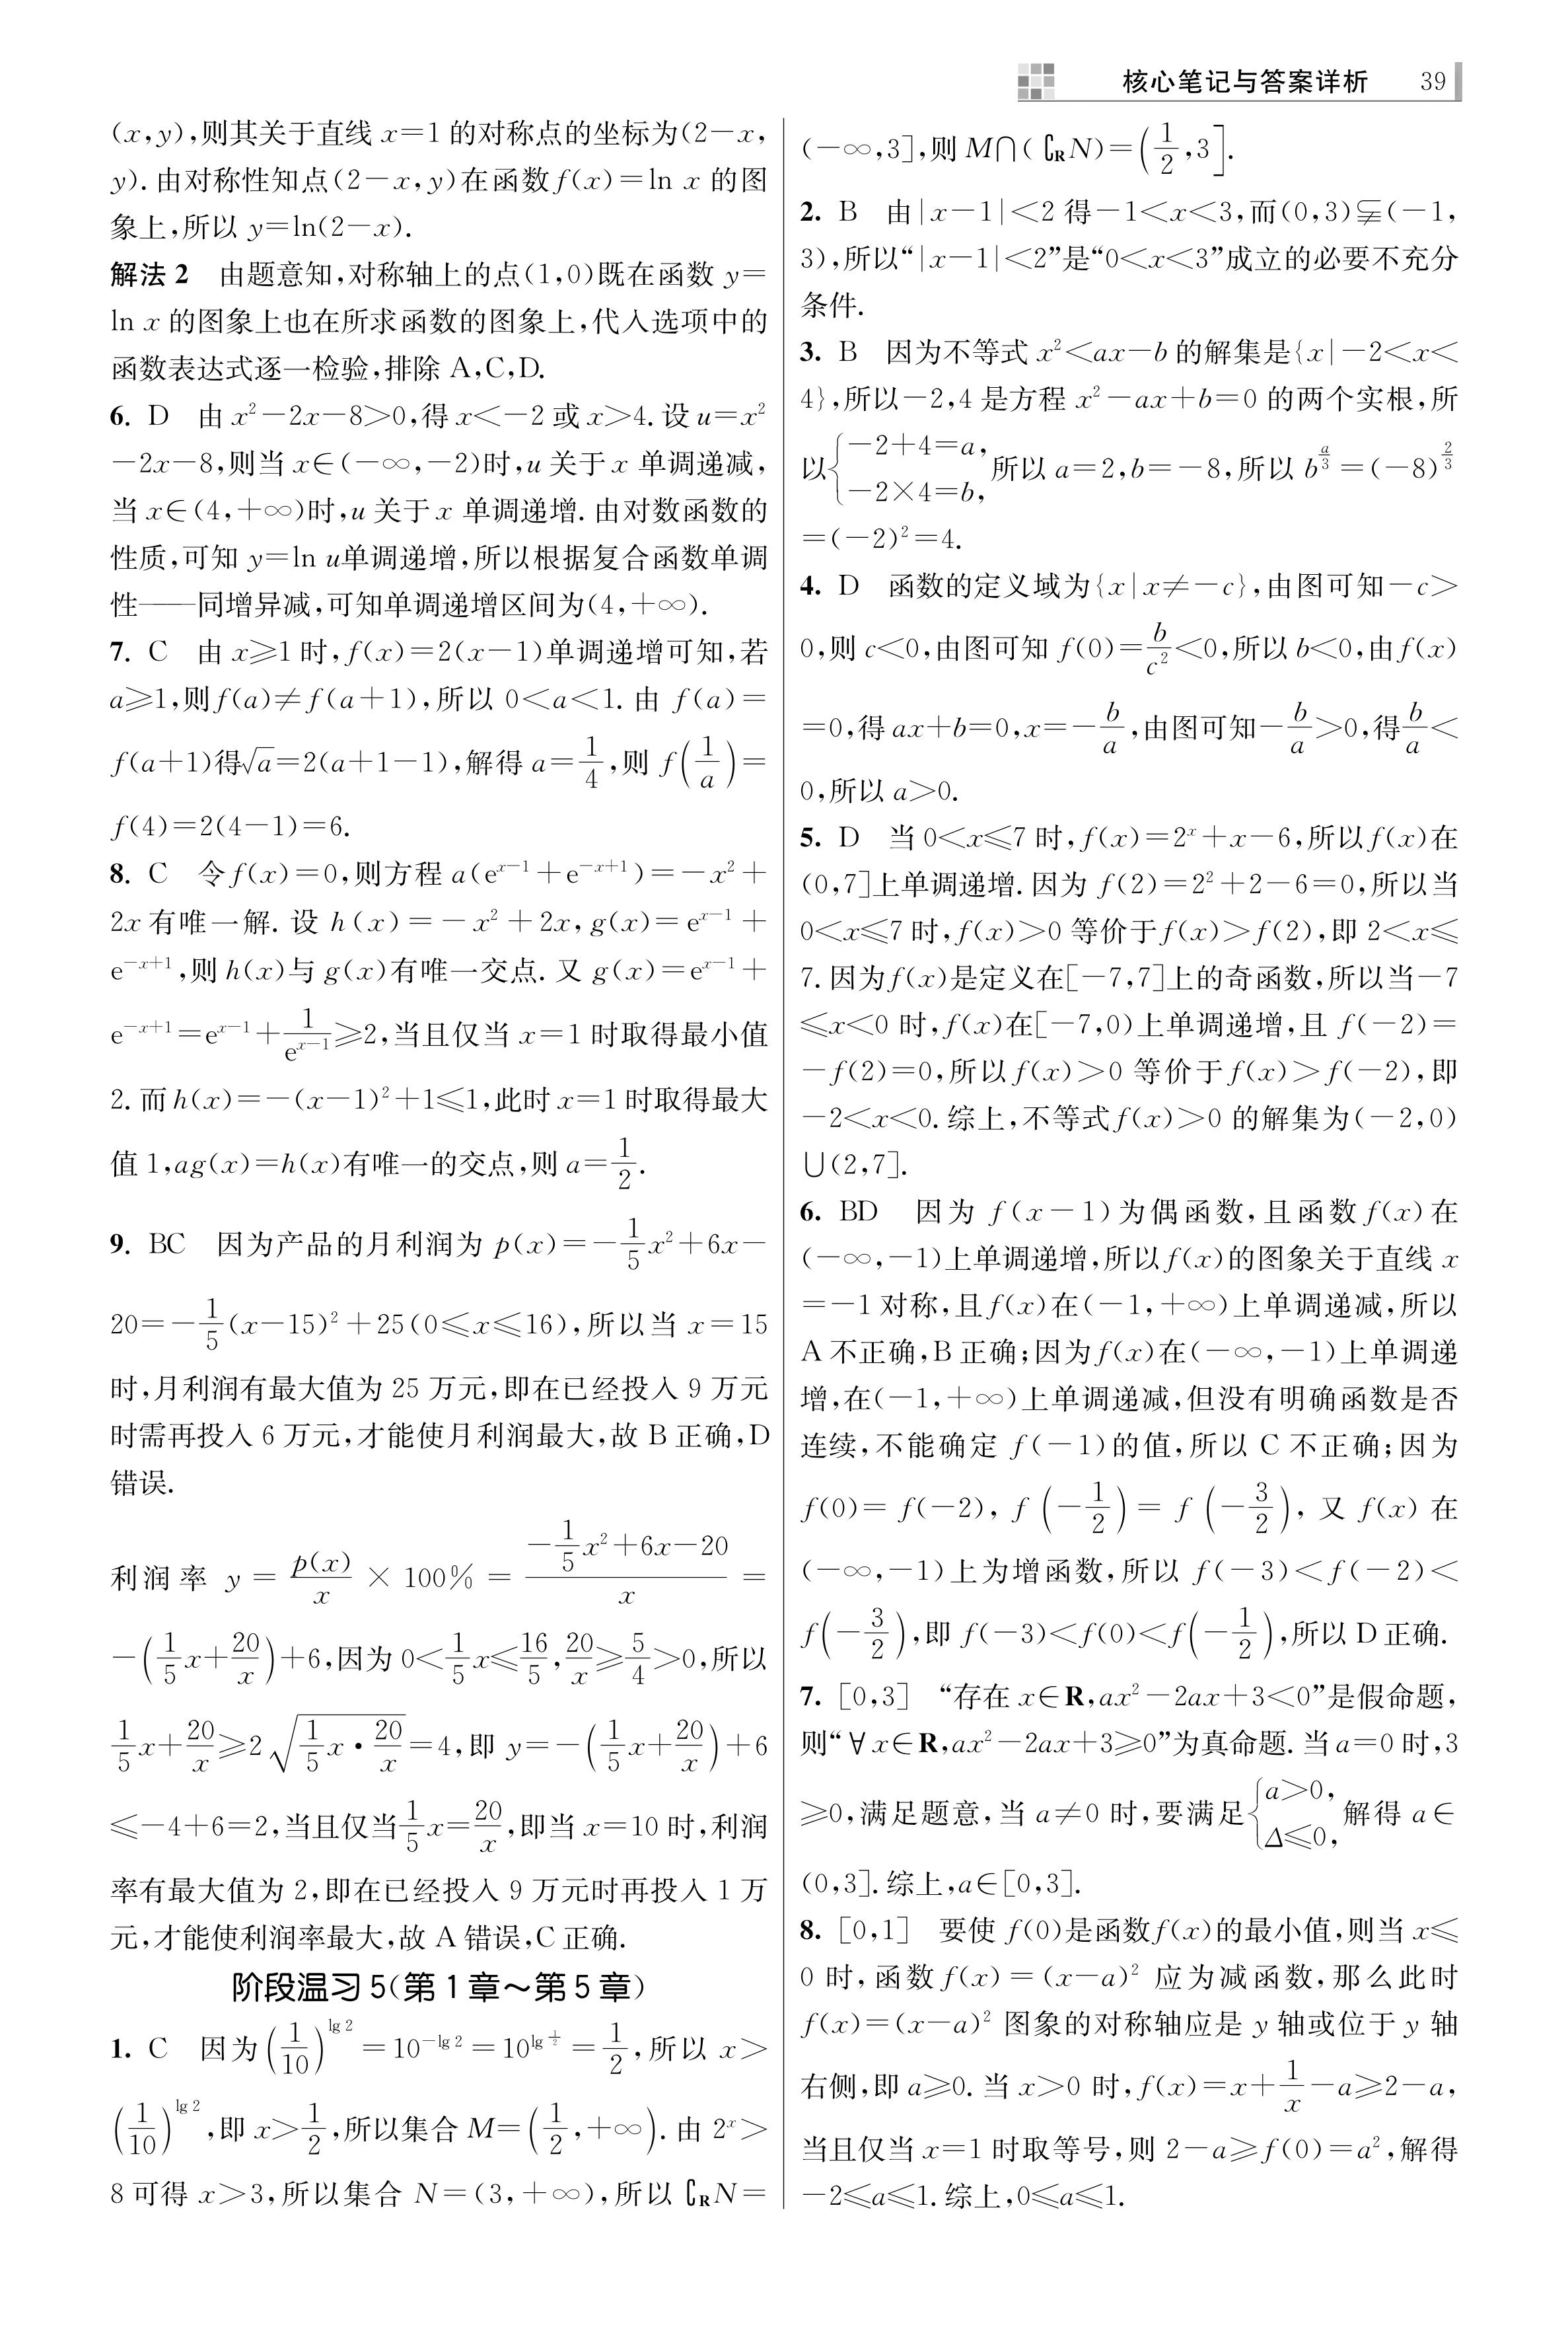 核心笔记与答案详析 39
(x,y),则其关于直线 x=1 的对称点的坐标为(2-x,
y). 由对称性知点(2-x,y)在函数f(x)=ln x 的图
象上,所以 y=ln(2-x).
解法 2 由题意知,对称轴上的点(1,0)既在函数 y=
ln x 的图象上也在所求函数的图象上,代入选项中的
函数表达式逐一检验,排除 A,C,D.
6. D 由 x²-2x-8>0,得 x<-2 或 x>4. 设 u=x²
-2x-8,则当 x∈(-∞,-2)时,u 关于 x 单调递减,
当 x∈(4,+∞)时,u 关于 x 单调递增. 由对数函数的
性质,可知 y=ln u单调递增,所以根据复合函数单调
性——同增异减,可知单调递增区间为(4,+∞).
7. C 由 x≥1 时,f(x)=2(x-1)单调递增可知,若
a≥1,则f(a)≠f(a+1),所以 0<a<1. 由 f(a)=
f(a+1)得√a=2(a+1-1),解得 a=1/4,则 f(1/a)=
f(4)=2(4-1)=6.
8. C 令 f(x)=0,则方程 a(e^{x-1}+e^{-x+1})=-x²+
2x 有唯一解. 设 h(x)=-x²+2x,g(x)=e^{x-1}+
e^{-x+1},则 h(x)与 g(x)有唯一交点. 又 g(x)=e^{x-1}+
e^{-x+1}=e^{x-1}+1/e^{x-1}≥2,当且仅当 x=1 时取得最小值
2. 而 h(x)=-(x-1)²+1≤1,此时 x=1 时取得最大
值 1,ag(x)=h(x)有唯一的交点,则 a=1/2.
9. BC 因为产品的月利润为 p(x)=-1/5x²+6x-
20=-1/5(x-15)²+25(0≤x≤16),所以当 x=15
时,月利润有最大值为 25 万元,即在已经投入 9 万元
时需再投入 6 万元,才能使月利润最大,故 B 正确,D
错误.
利润率 y=p(x)/x×100%=(-1/5x²+6x-20)/x=
-(1/5x+20/x)+6,因为 0<1/5x≤16/5,20/x≥5/4>0,所以
1/5x+20/x≥2√(1/5x·20/x)=4,即 y=-(1/5x+20/x)+6
≤-4+6=2,当且仅当1/5x=20/x,即当 x=10 时,利润
率有最大值为 2,即在已经投入 9 万元时再投入 1 万
元,才能使利润率最大,故 A 错误,C 正确.
阶段温习 5(第 1 章～第 5 章)
1. C 因为(1/10)^{lg 2}=10^{-lg 2}=10^{lg 1/2}=1/2,所以 x>
(1/10)^{lg 2},即 x>1/2,所以集合 M=(1/2,+∞). 由 2^x>
8 可得 x>3,所以集合 N=(3,+∞),所以 ∁_R N=
(-∞,3],则 M∩(∁_R N)=(1/2,3].
2. B 由|x-1|<2 得-1<x<3,而(0,3)⫋(-1,
3),所以“|x-1|<2”是“0<x<3”成立的必要不充分
条件.
3. B 因为不等式 x²<ax-b 的解集是{x|-2<x<
4},所以-2,4 是方程 x²-ax+b=0 的两个实根,所
以{-2+4=a, -2×4=b, 所以 a=2,b=-8,所以 b^{a/3}=(-8)^{2/3}
=(-2)²=4.
4. D 函数的定义域为{x|x≠-c},由图可知-c>
0,则 c<0,由图可知 f(0)=b/c²<0,所以 b<0,由f(x)
=0,得 ax+b=0,x=-b/a,由图可知-b/a>0,得b/a<
0,所以 a>0.
5. D 当 0<x≤7 时,f(x)=2^x+x-6,所以f(x)在
(0,7]上单调递增. 因为 f(2)=2²+2-6=0,所以当
0<x≤7 时,f(x)>0 等价于f(x)>f(2),即 2<x≤
7. 因为f(x)是定义在[-7,7]上的奇函数,所以当-7
≤x<0 时,f(x)在[-7,0)上单调递增,且 f(-2)=
-f(2)=0,所以f(x)>0 等价于f(x)>f(-2),即
-2<x<0. 综上,不等式f(x)>0 的解集为(-2,0)
∪(2,7].
6. BD 因为 f(x-1)为偶函数,且函数 f(x)在
(-∞,-1)上单调递增,所以f(x)的图象关于直线 x
=-1 对称,且f(x)在(-1,+∞)上单调递减,所以
A 不正确,B 正确;因为f(x)在(-∞,-1)上单调递
增,在(-1,+∞)上单调递减,但没有明确函数是否
连续,不能确定 f(-1)的值,所以 C 不正确;因为
f(0)=f(-2),f(-1/2)=f(-3/2),又 f(x)在
(-∞,-1)上为增函数,所以 f(-3)<f(-2)<
f(-3/2),即 f(-3)<f(0)<f(-1/2),所以 D 正确.
7. [0,3] “存在 x∈R,ax²-2ax+3<0”是假命题,
则“∀x∈R,ax²-2ax+3≥0”为真命题. 当 a=0 时,3
≥0,满足题意,当 a≠0 时,要满足{a>0, Δ≤0, 解得 a∈
(0,3]. 综上,a∈[0,3].
8. [0,1] 要使 f(0)是函数f(x)的最小值,则当 x≤
0 时,函数 f(x)=(x-a)² 应为减函数,那么此时
f(x)=(x-a)² 图象的对称轴应是 y 轴或位于 y 轴
右侧,即 a≥0. 当 x>0 时,f(x)=x+1/x-a≥2-a,
当且仅当 x=1 时取等号,则 2-a≥f(0)=a²,解得
-2≤a≤1. 综上,0≤a≤1.